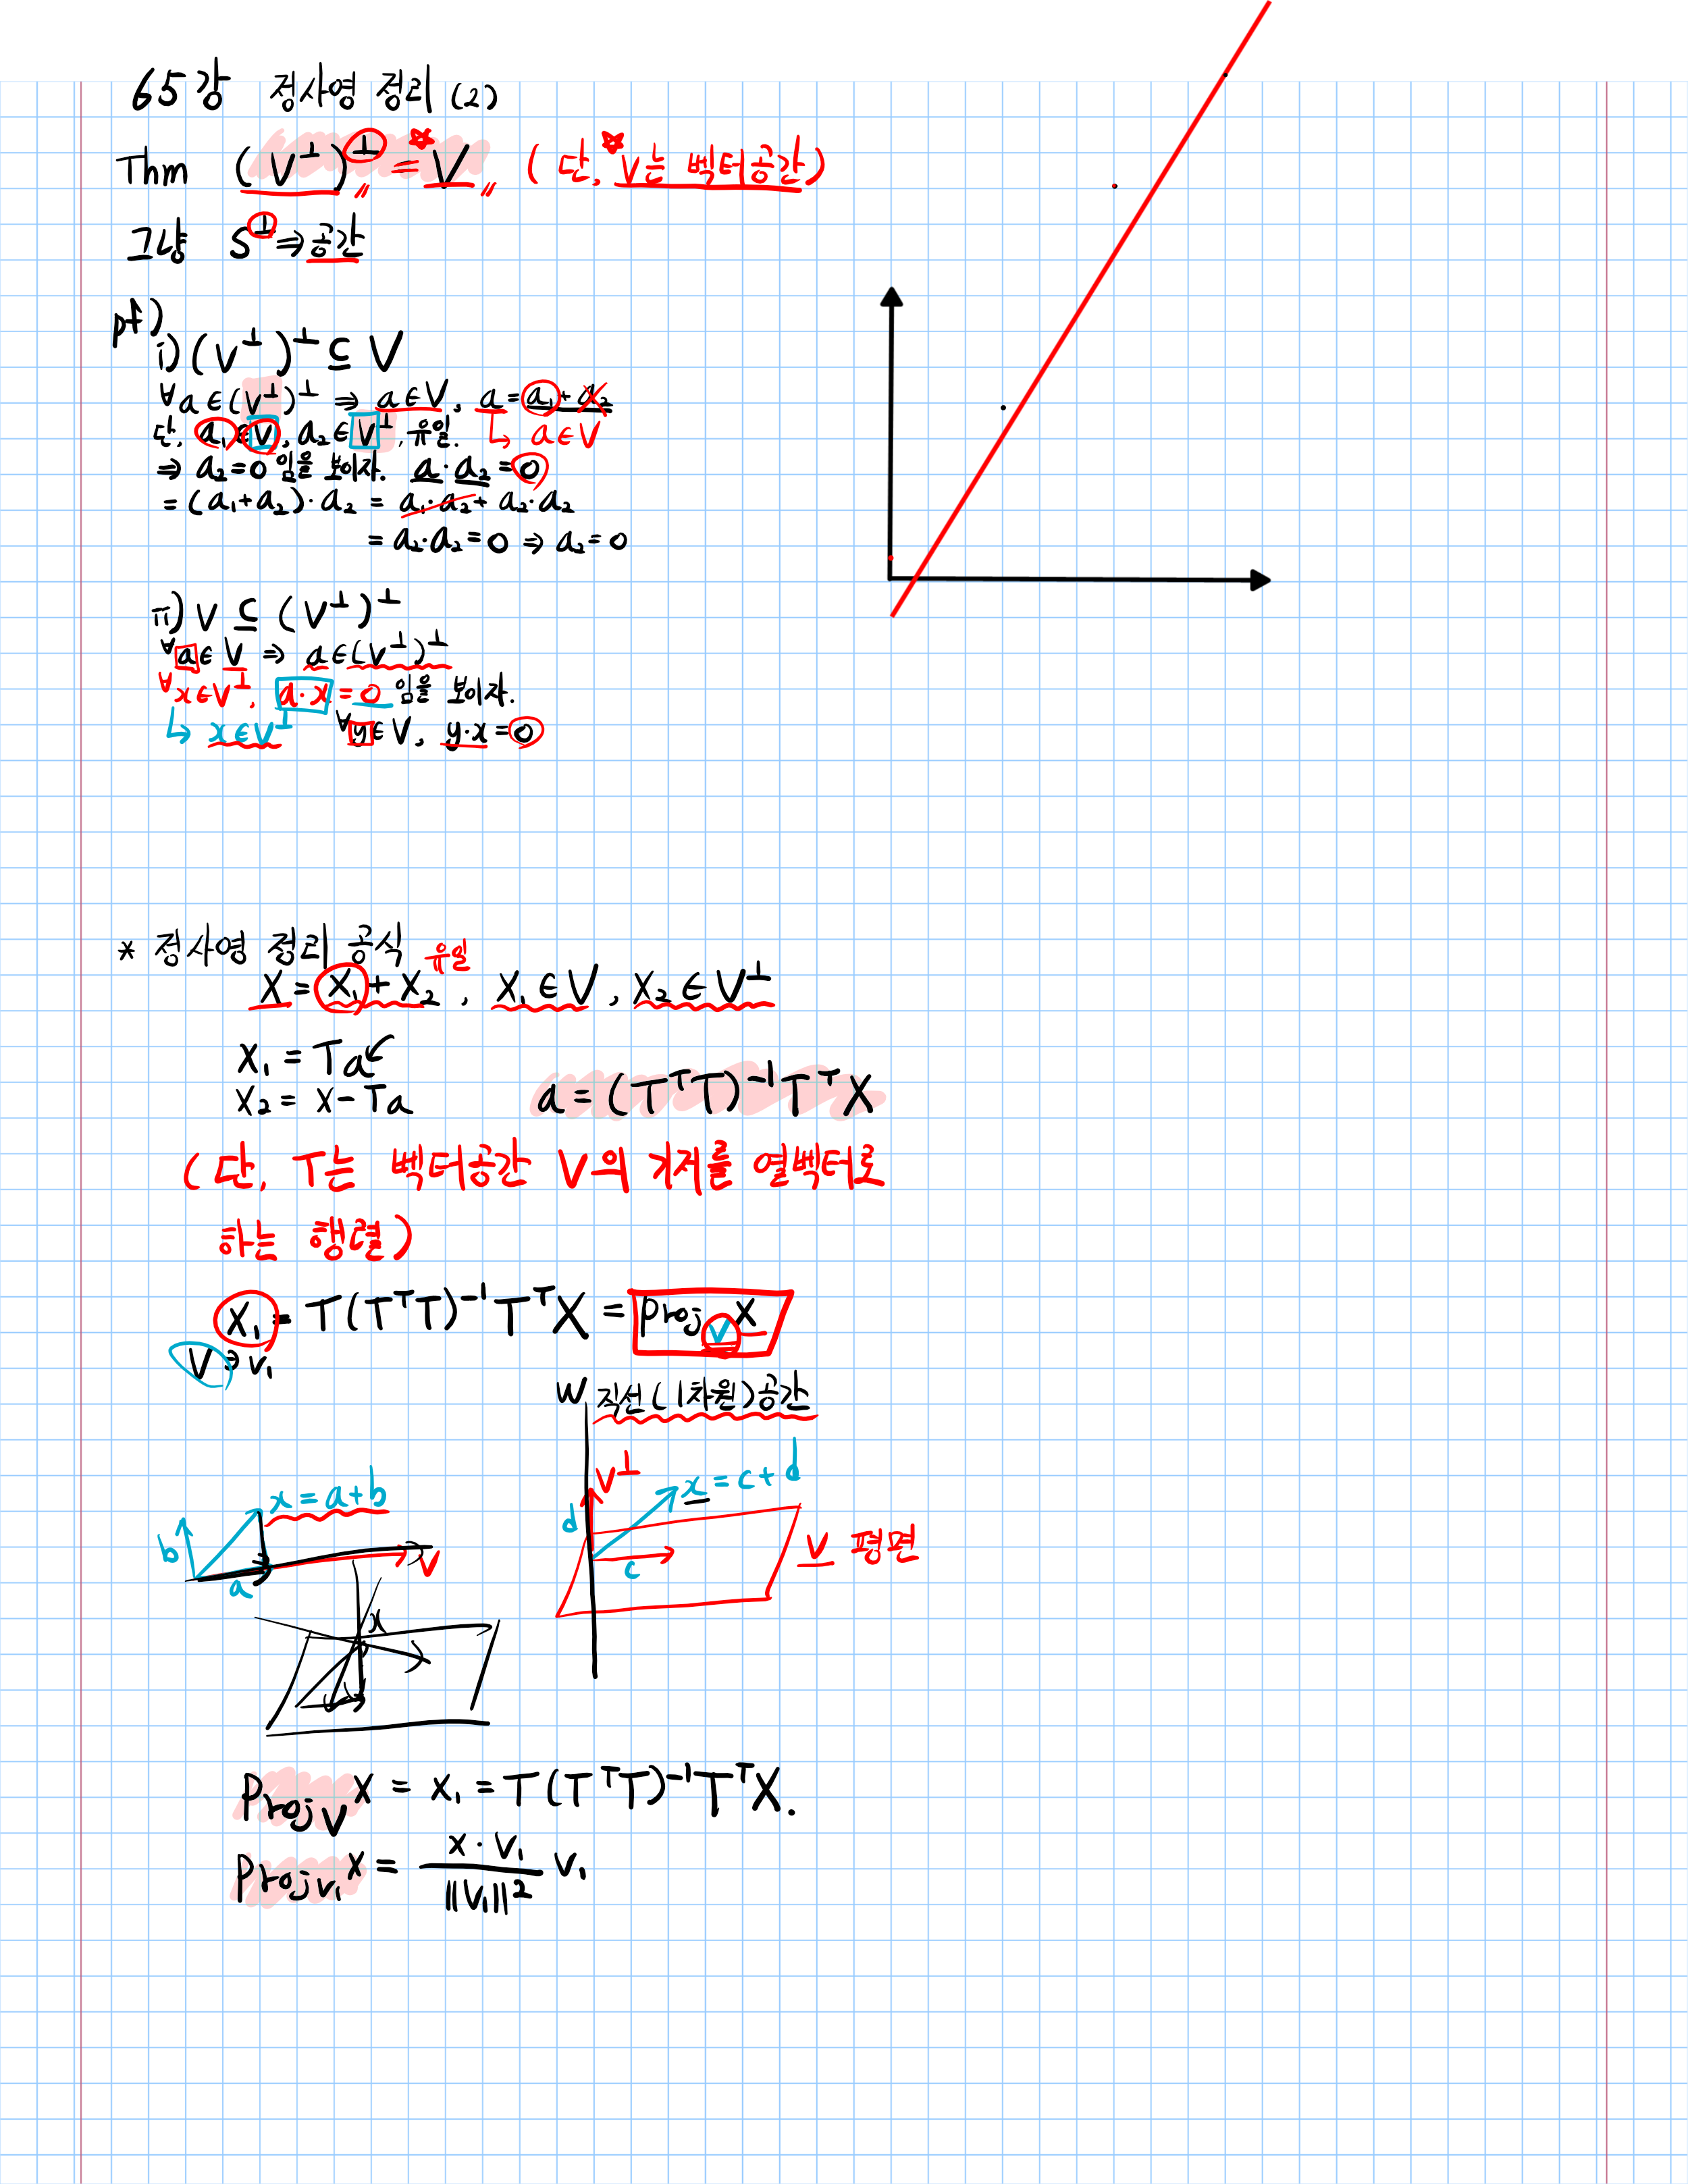 65강 정사영 정리 (2)
Thm (V⊥)⊥ = V (단, V는 벡터공간)
그냥 S⊥ ⇒ 공간
pf)
i) (V⊥)⊥ ⊆ V
∀a∈(V⊥)⊥ ⇒ a∈V, a = a₁ + a₂
단, a₁∈V, a₂∈V⊥, 유일. ↳ a∈V
⇒ a₂=0 임을 보이자. a·a₂ = 0
= (a₁+a₂)·a₂ = a₁·a₂ + a₂·a₂
= a₂·a₂ = 0 ⇒ a₂ = 0
ii) V ⊆ (V⊥)⊥
∀a∈V ⇒ a∈(V⊥)⊥
∀x∈V⊥, a·x = 0 임을 보이자.
↳ x∈V⊥ ∀y∈V, y·x = 0
* 정사영 정리 공식
유일
X = X₁ + X₂, X₁∈V, X₂∈V⊥
X₁ = Ta
X₂ = X - Ta
a = (TᵀT)⁻¹TᵀX
(단, T는 벡터공간 V의 기저를 열벡터로
하는 행렬)
X₁ = T(TᵀT)⁻¹TᵀX = proj_V X
V∋v₁
W 직선(1차원)공간
x = a+b
b
a
V
V⊥
x = c+d
d
c
V 평면
x
Proj_V X = x₁ = T(TᵀT)⁻¹TᵀX.
Proj_v₁ x = x·v₁ / ||v₁||² v₁